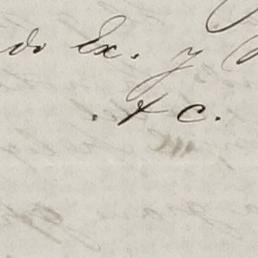 do Ex. y
. & c.